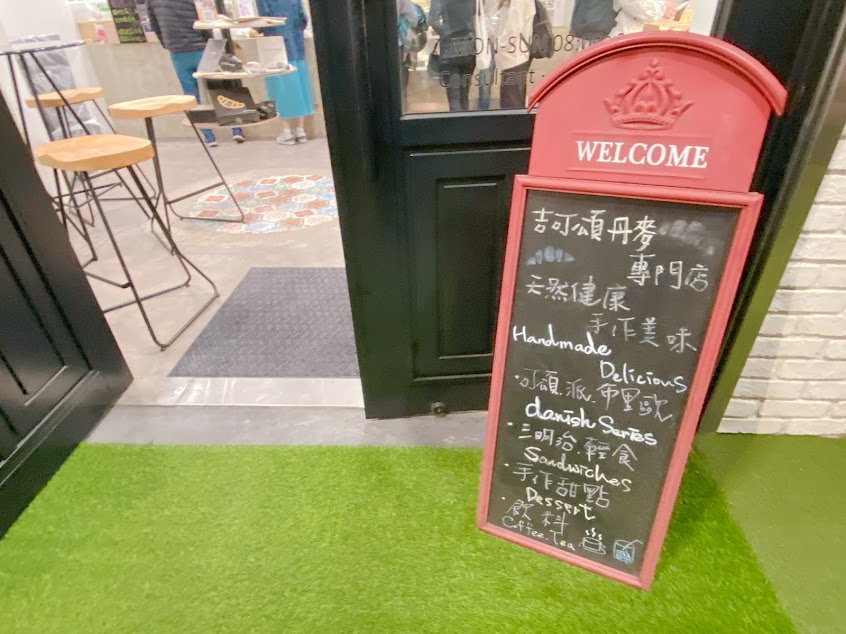 MON-SUN 08:
Consultant
WELCOME
吉可頌丹麥
專門店
天然健康
手作美味
Handmade
Delicious
·可頌.派.布里歐
danish Series
·三明治.輕食
Sandwiches
·手作甜點
Dessert
·飲料
Coffee.Tea